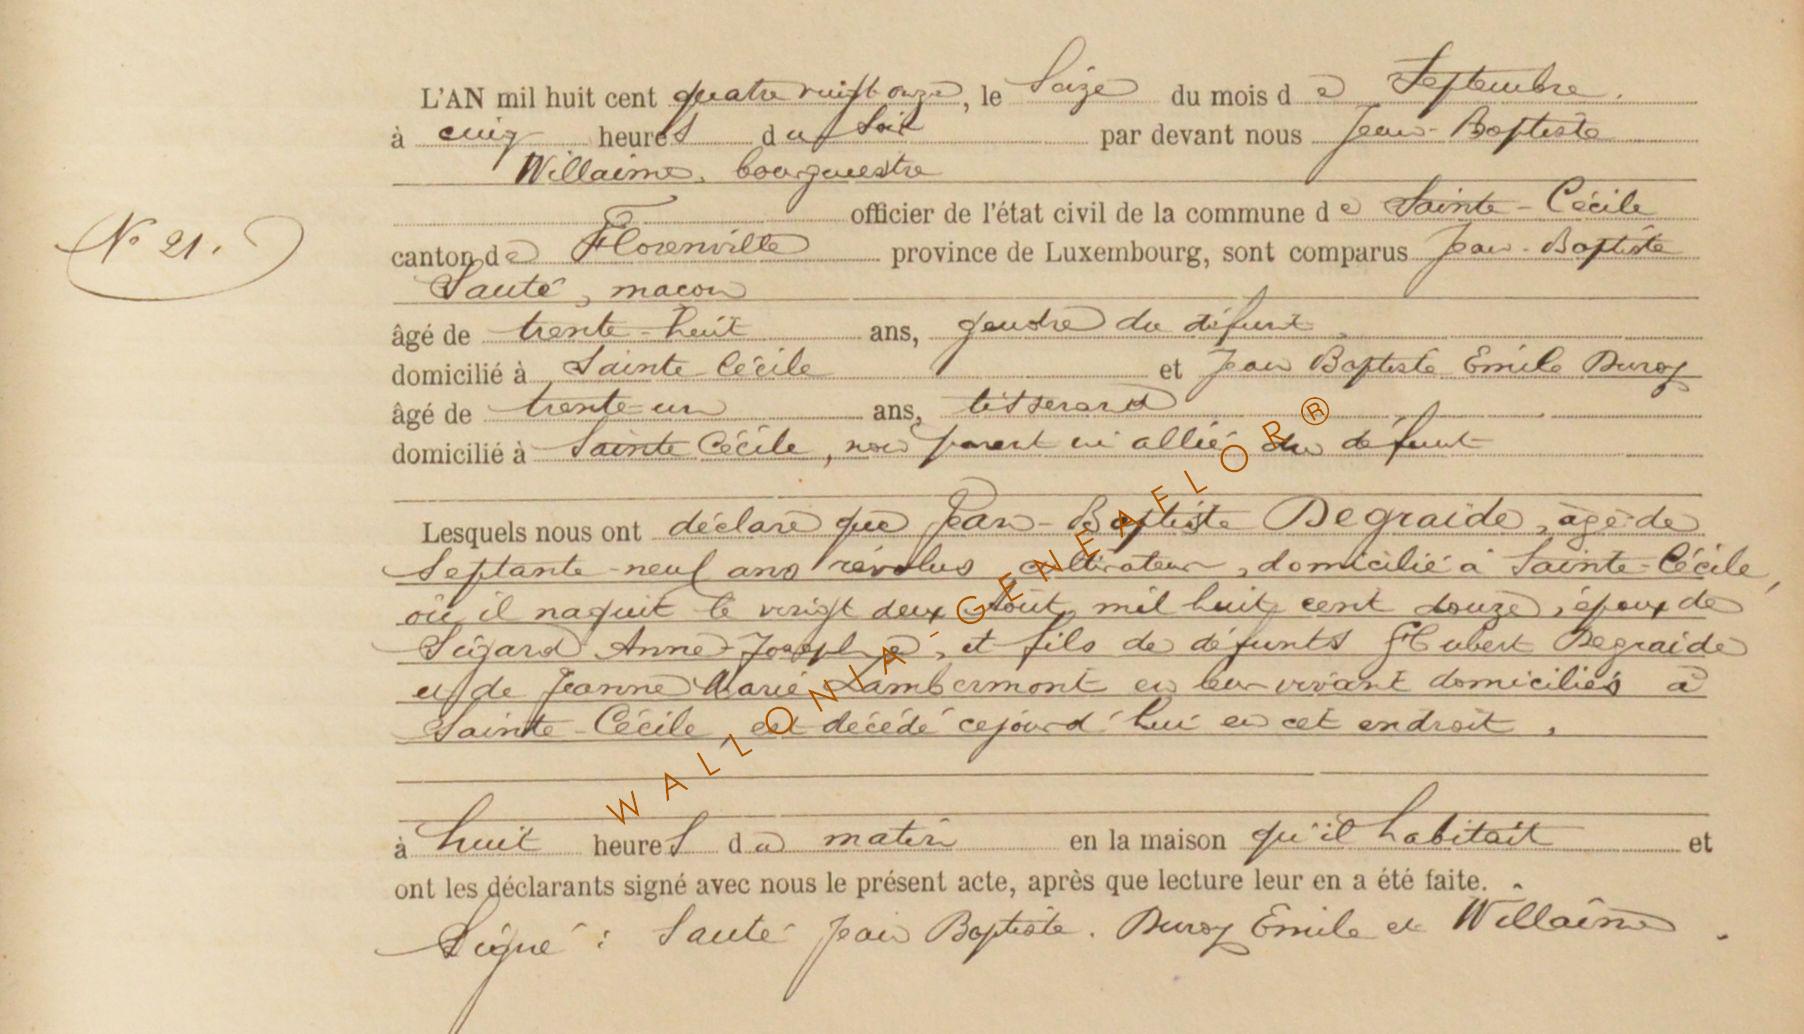 L'AN mil huit cent quatre vingt onze, le Seize du mois de Septembre.
à cinq heures du soir par devant nous Jean-Baptiste
Willaime, bourgmestre
officier de l'état civil de la commune de Sainte-Cécile
N° 21.
canton de Florenville province de Luxembourg, sont comparus Jean-Baptiste
Sauté, maçon
âgé de trente-huit ans, gendre du défunt
domicilié à Sainte Cécile et Jean Baptiste Emile Duroy
âgé de trente-un ans, tisserand
domicilié à Sainte Cécile, non parent ni allié du défunt
Lesquels nous ont déclaré que Jean-Baptiste Degraide, âgé de
Septante-neuf ans révolus cultivateur, domicilié à Sainte-Cécile,
où il naquit le vingt deux août mil huit cent douze, époux de
Sigard Anne-Josèphe, et fils de défunts Hubert Degraide
et de Jeanne Marie Lambermont en leur vivant domiciliés à
Sainte-Cécile, est décédé cejourd'hui en cet endroit.
à huit heures du matin en la maison qu'il habitait et
ont les déclarants signé avec nous le présent acte, après que lecture leur en a été faite.
Signé : Sauté Jean Baptiste. Duroy Emile et Willaime.
WALLONIA-GENEAFLOR®